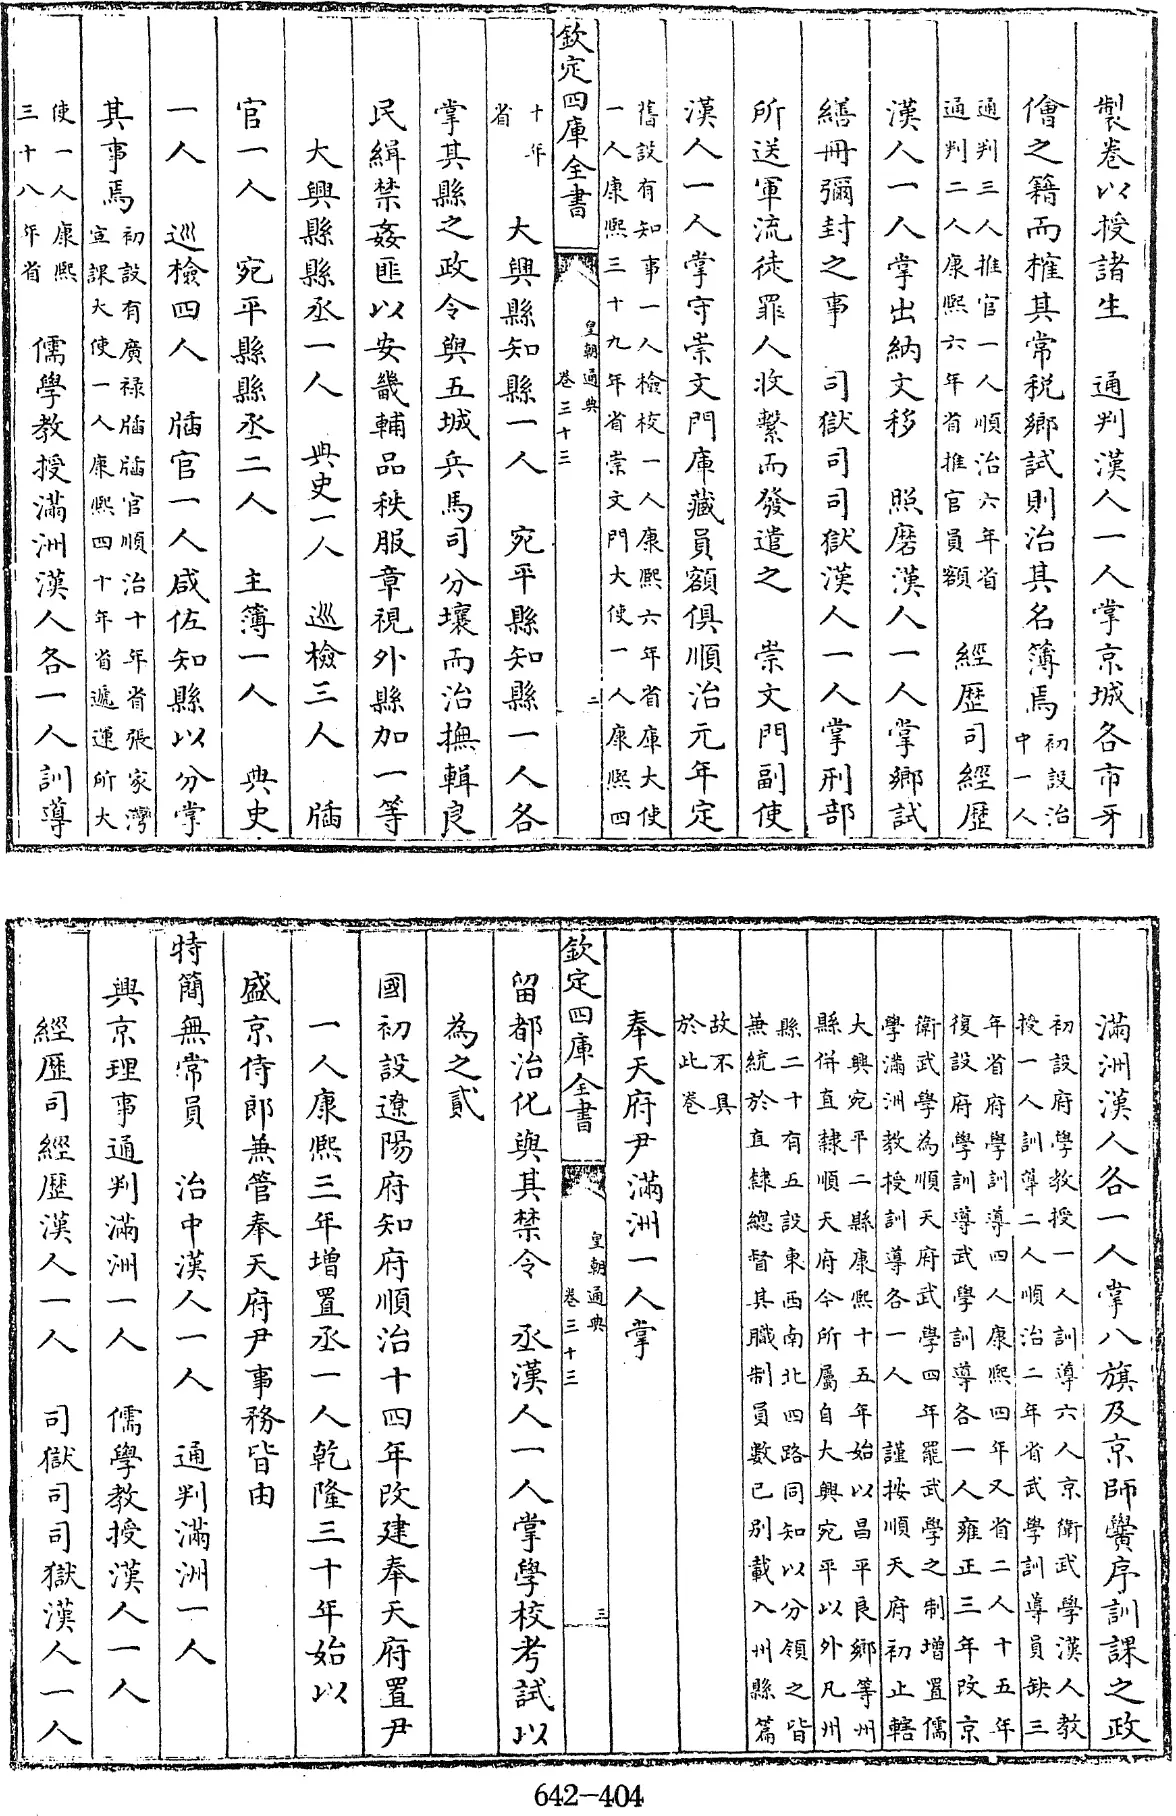 製卷以授諸生　通判漢人一人掌京城各市牙
儈之籍而榷其常税鄉試則治其名簿焉初設治中一人
通判三人推官一人順治六年省通判二人康熙六年省推官員額　經歴司經歴
漢人一人掌出納文移　照磨漢人一人掌鄉試
繕冊彌封之事　司獄司司獄漢人一人掌刑部
所送軍流徒罪人收繫而發遣之　崇文門副使
漢人一人掌守崇文門庫藏員額俱順治元年定
舊設有知事一人檢校一人康熙六年省庫大使一人康熙三十九年省崇文門大使一人康熙四
欽定四庫全書　皇朝通典　卷三十三　二
十年省　大興縣知縣一人　宛平縣知縣一人各
掌其縣之政令與五城兵馬司分壤而治撫輯良
民緝禁姦匪以安畿輔品秩服章視外縣加一等
大興縣縣丞一人　典史一人　巡檢三人　牐
官一人　宛平縣縣丞二人　主簿一人　典史
一人　巡檢四人　牐官一人咸佐知縣以分掌
其事焉初設有廣禄牐牐官順治十年省張家灣宣課大使一人康熙四十年省遞運所大
使一人康熙三十八年省　儒學教授滿洲漢人各一人訓導
滿洲漢人各一人掌八旗及京師黌序訓課之政
初設府學教授一人訓導六人京衛武學漢人教授一人訓導二人順治二年省武學訓導員缺三
年省府學訓導四人康熙四年又省二人十五年復設府學訓導武學訓導各一人雍正三年改京
衛武學為順天府武學四年罷武學之制增置儒學滿洲教授訓導各一人　謹按順天府初止轄
大興宛平二縣康熙十五年始以昌平良鄉等州縣併直隸順天府今所屬自大興宛平以外凡州
縣二十有五設東西南北四路同知以分領之皆兼統於直隸總督其職制員數已别載入州縣篇
故不具於此卷
奉天府尹滿洲一人掌
欽定四庫全書　皇朝通典　卷三十三　三
留都治化與其禁令　丞漢人一人掌學校考試以
為之貳
國初設遼陽府知府順治十四年改建奉天府置尹
一人康熙三年增置丞一人乾隆三十年始以
盛京侍郎兼管奉天府尹事務皆由
特簡無常員　治中漢人一人　通判滿洲一人
興京理事通判滿洲一人　儒學教授漢人一人
經歷司經歷漢人一人　司獄司司獄漢人一人
642-404